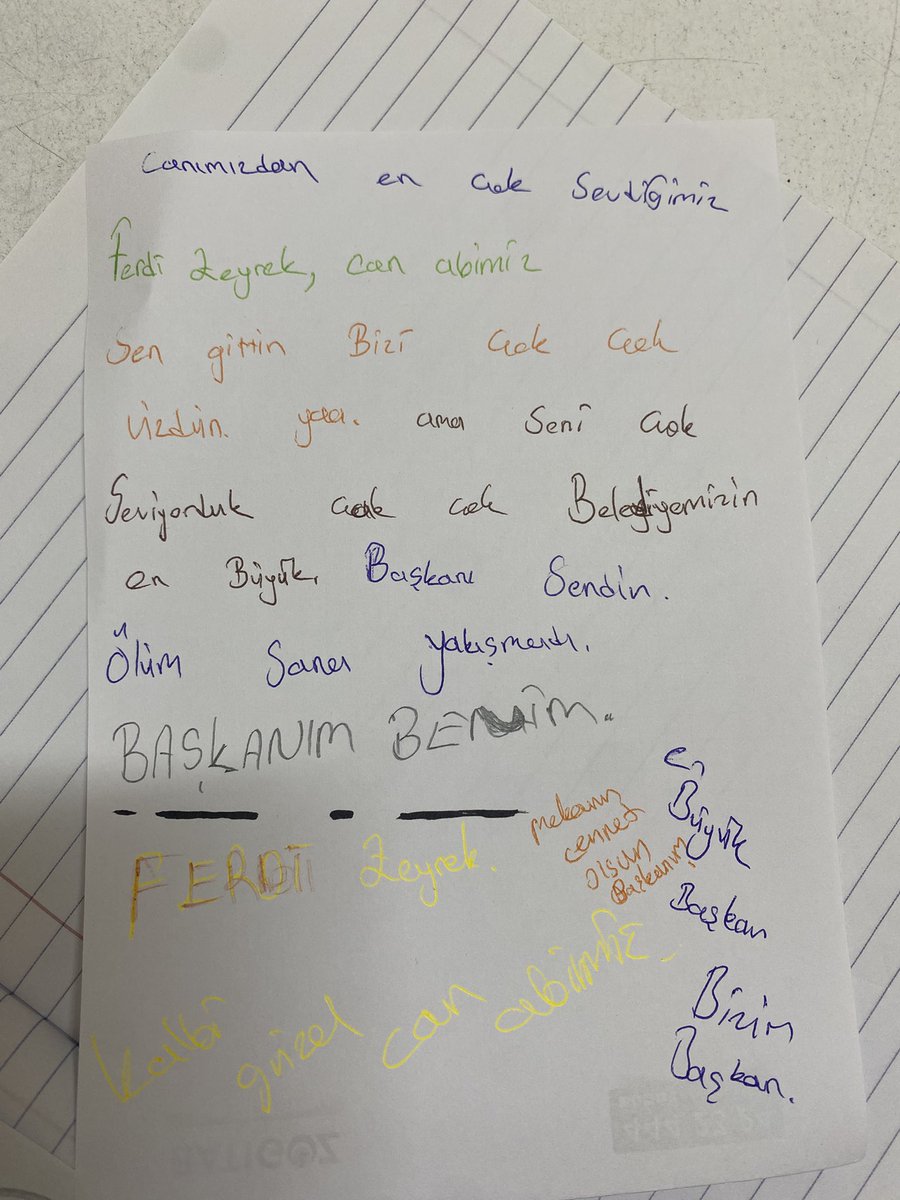 Canımızdan en çok Sevdiğimiz
Ferdi Zeyrek, can abimiz
Sen gittin Bizi çok çok
üzdün. yaa. ama Seni çok
Seviyorduk çok çok Belediyemizin
en Büyük Başkanı Sendin.
Ölüm Sana yakışmadı.
BAŞKANIM BENİM.
FERDİ Zeyrek.
mekanın
cennet
olsun
Başkanım
en
Büyük
Başkan
Bizim
Başkan.
Kalbi güzel can abimiz.
BATIGÖZ